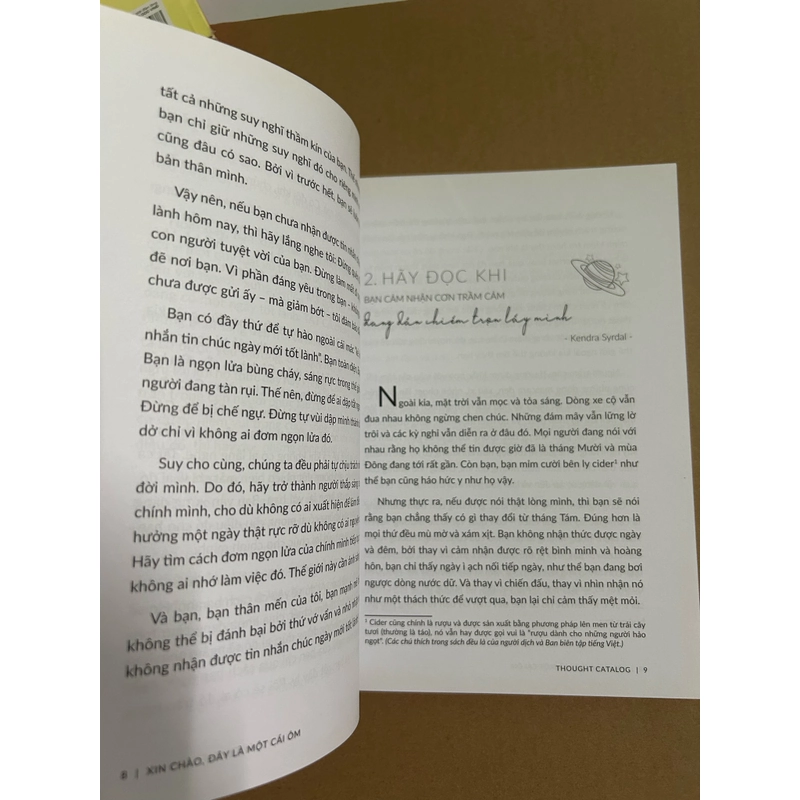 tất cả những suy nghĩ thầm kín của bạn. Thế
bạn chỉ giữ những suy nghĩ đó cho riêng
cũng đâu có sao. Bởi vì trước hết, bạn sẽ
bản thân mình.
Vậy nên, nếu bạn chưa nhận được tin nhắn
lành hôm nay, thì hãy lắng nghe tôi: Đừng
con người tuyệt vời của bạn. Đừng làm mất
đẽ nơi bạn. Vì phần đáng yêu trong bạn –
chưa được gửi ấy – mà giảm bớt – tôi đảm bảo
Bạn có đầy thứ để tự hào ngoài cái mác
nhắn tin chúc ngày mới tốt lành”. Bạn toàn diện
Bạn là ngọn lửa bùng cháy, sáng rực trong thế
người đang tàn rụi. Thế nên, đừng để ai dập tắt
Đừng để bị chế ngự. Đừng tự vùi dập mình
dở chỉ vì không ai đơm ngọn lửa đó.
Suy cho cùng, chúng ta đều phải tự chịu trách
đời mình. Do đó, hãy trở thành người thắp sáng
chính mình, cho dù không có ai xuất hiện để làm
hưởng một ngày thật rực rỡ dù không có ai
Hãy tìm cách đơm ngọn lửa của chính mình tiếp
không ai nhớ làm việc đó. Thế giới này cần ánh
Và bạn, bạn thân mến của tôi, bạn mạnh mẽ
không thể bị đánh bại bởi thứ vớ vẩn và nhỏ
không nhận được tin nhắn chúc ngày mới tốt lành
8 | XIN CHÀO, ĐÂY LÀ MỘT CÁI ÔM
2. HÃY ĐỌC KHI
BẠN CẢM NHẬN CƠN TRẦM CẢM
đang dần chiếm trọn lấy mình
- Kendra Syrdal -
Ngoài kia, mặt trời vẫn mọc và tỏa sáng. Dòng xe cộ vẫn
đua nhau không ngừng chen chúc. Những đám mây vẫn lững lờ
trôi và các kỳ nghỉ vẫn diễn ra ở đâu đó. Mọi người đang nói với
nhau rằng họ không thể tin được giờ đã là tháng Mười và mùa
Đông đang tới rất gần. Còn bạn, bạn mỉm cười bên ly cider¹ như
thể bạn cũng háo hức y như họ vậy.
Nhưng thực ra, nếu được nói thật lòng mình, thì bạn sẽ nói
rằng bạn chẳng thấy có gì thay đổi từ tháng Tám. Đúng hơn là
mọi thứ đều mù mờ và xám xịt. Bạn không nhận thức được ngày
và đêm, bởi thay vì cảm nhận được rõ rệt bình minh và hoàng
hôn, bạn chỉ thấy ngày ì ạch nối tiếp ngày, như thể bạn đang bơi
ngược dòng nước dữ. Và thay vì chiến đấu, thay vì nhìn nhận nó
như một thách thức để vượt qua, bạn lại chỉ cảm thấy mệt mỏi.
¹ Cider cũng chính là rượu và được sản xuất bằng phương pháp lên men từ trái cây
tươi (thường là táo), nó vẫn hay được gọi vui là “rượu dành cho những người hảo
ngọt”. (Các chú thích trong sách đều là của người dịch và Ban biên tập tiếng Việt.)
THOUGHT CATALOG | 9